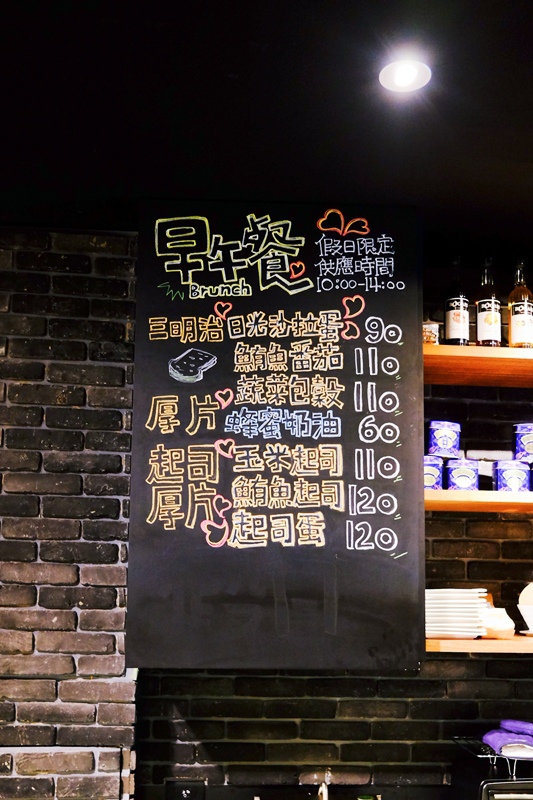 早午餐
Brunch
假日限定
供應時間
10:00-14:00
三明治 日光沙拉蛋 90
鮪魚番茄 110
蔬菜包穀 110
厚片 蜂蜜奶油 60
起司 玉米起司 110
厚片 鮪魚起司 120
起司蛋 120